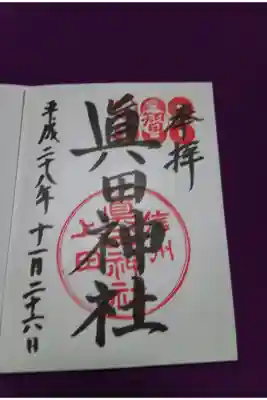 奉拝
眞田神社
信州
上田
眞田神社
平成二十八年十一月二十六日